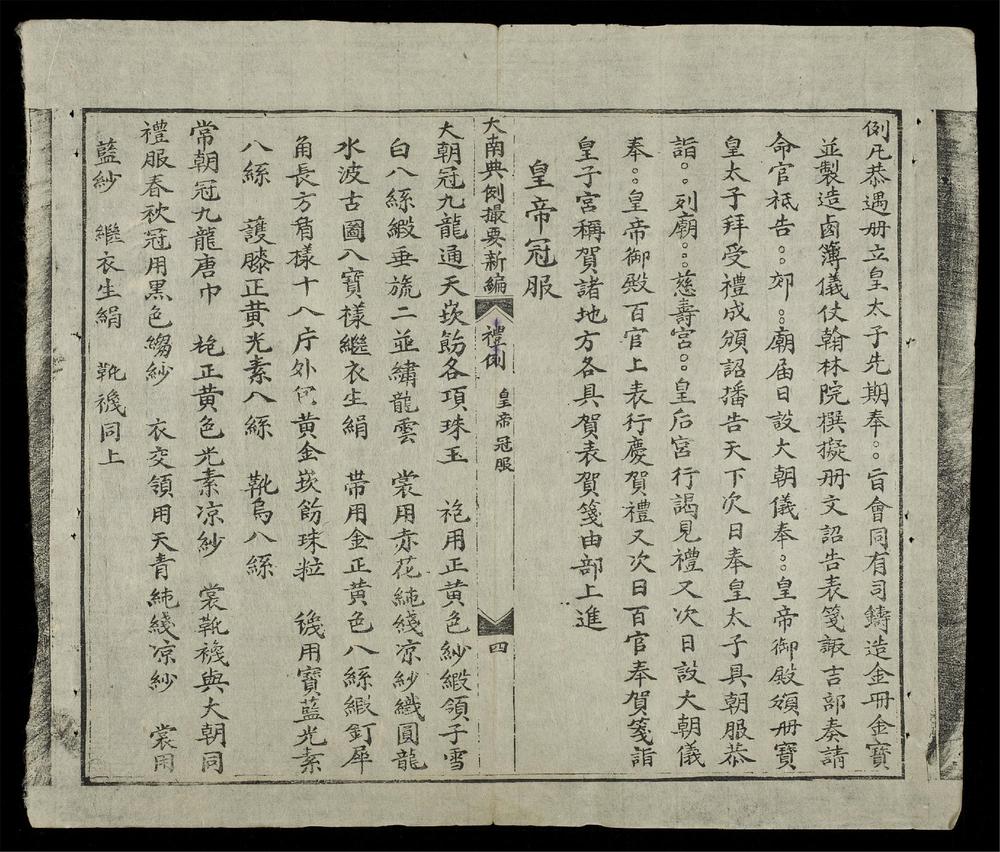 例凡恭遇册立皇太子先期奉○○旨會同有司鑄造金冊金寶
並製造鹵簿儀仗翰林院撰擬册文詔告表箋諏吉部奏請
命官祗告○○郊○○廟届日設大朝儀奉○○皇帝御殿頒册寶
皇太子拜受禮成頒詔播告天下次日奉皇太子具朝服恭
詣○○列廟○○慈壽宮○○皇后宮行謁見禮又次日設大朝儀
奉○○皇帝御殿百官上表行慶賀禮又次日百官奉賀箋詣
皇子宮稱賀諸地方各具賀表賀箋由部上進
皇帝冠服
大南典例撮要新編 禮例 皇帝冠服 四
大朝冠九龍通天嵌飭各項珠玉 袍用正黄色紗緞領子雪
白八絲緞垂旒二並繡龍雲 裳用赤花純綫凉紗織圓龍
水波古圖八寶樣繼衣生絹 帶用金正黄色八絲緞釘犀
角長方角樣十八片外何黄金嵌飭珠粒 襪用寶藍光素
八絲 護膝正黄光素八絲 靴烏八絲
常朝冠九龍唐巾 袍正黄色光素凉紗 裳靴襪與大朝同
禮服春秋冠用黒色縐紗 衣交領用天青純綫凉紗 裳用
藍紗 繼衣生絹 靴襪同上